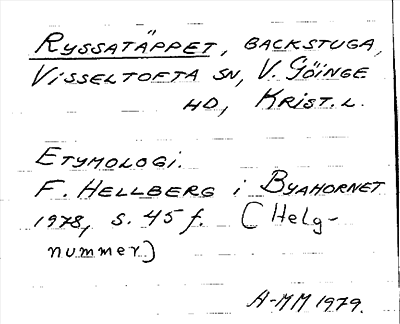 RYSSATÄPPET, BACKSTUGA,
VISSELTOFTA SN, V. GÖINGE
HD, KRIST. L.
ETYMOLOGI.
F. HELLBERG i BYAHORNET
1978, S. 45 f. (Helg-
nummer)
A-MM 1979.